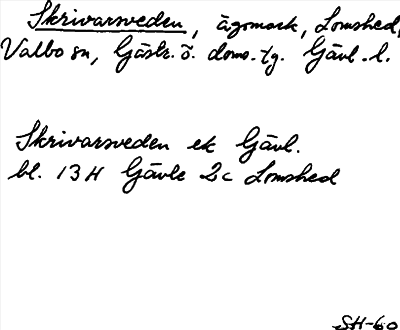 Skrivarsveden, ägomark, Lomshed,
Valbo sn, Gästr. ö. doms.-tg. Gävl. l.
Skrivarsveden ek Gävl.
bl. 13H Gävle 2c Lomshed
SH-60